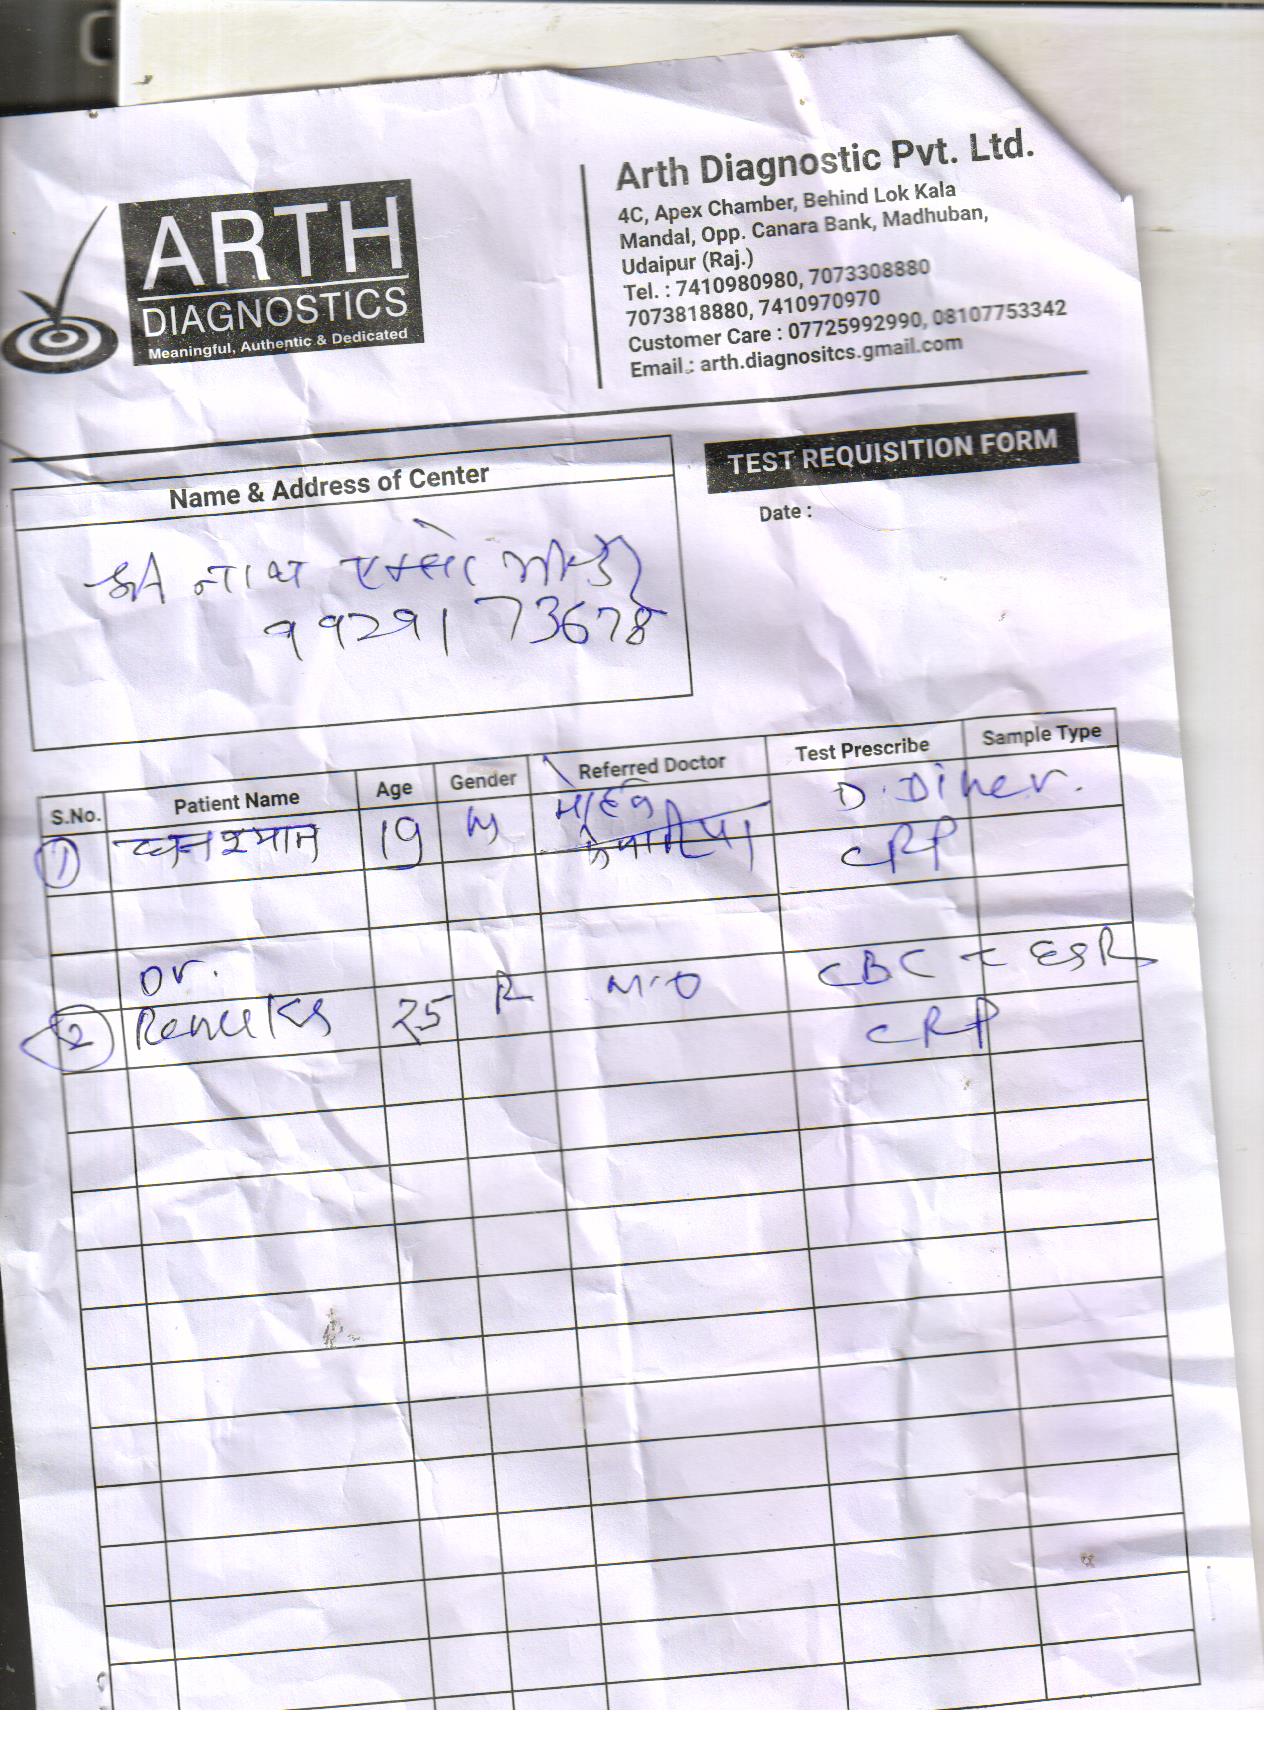 ARTH
DIAGNOSTICS
Meaningful, Authentic & Dedicated
Arth Diagnostic Pvt. Ltd.
4C, Apex Chamber, Behind Lok Kala
Mandal, Opp. Canara Bank, Madhuban,
Udaipur (Raj.)
Tel. : 7410980980, 7073308880
7073818880, 7410970970
Customer Care : 07725992990, 08107753342
Email : arth.diagnositcs.gmail.com
Name & Address of Center
TEST REQUISITION FORM
Date :
श्री नाथ
9929173678
S.No. Patient Name Age Gender Referred Doctor Test Prescribe Sample Type
1 घनश्याम 19 M D.Dimer.
CRP
Dr.
2 25 M.O CBC ESR
CRP